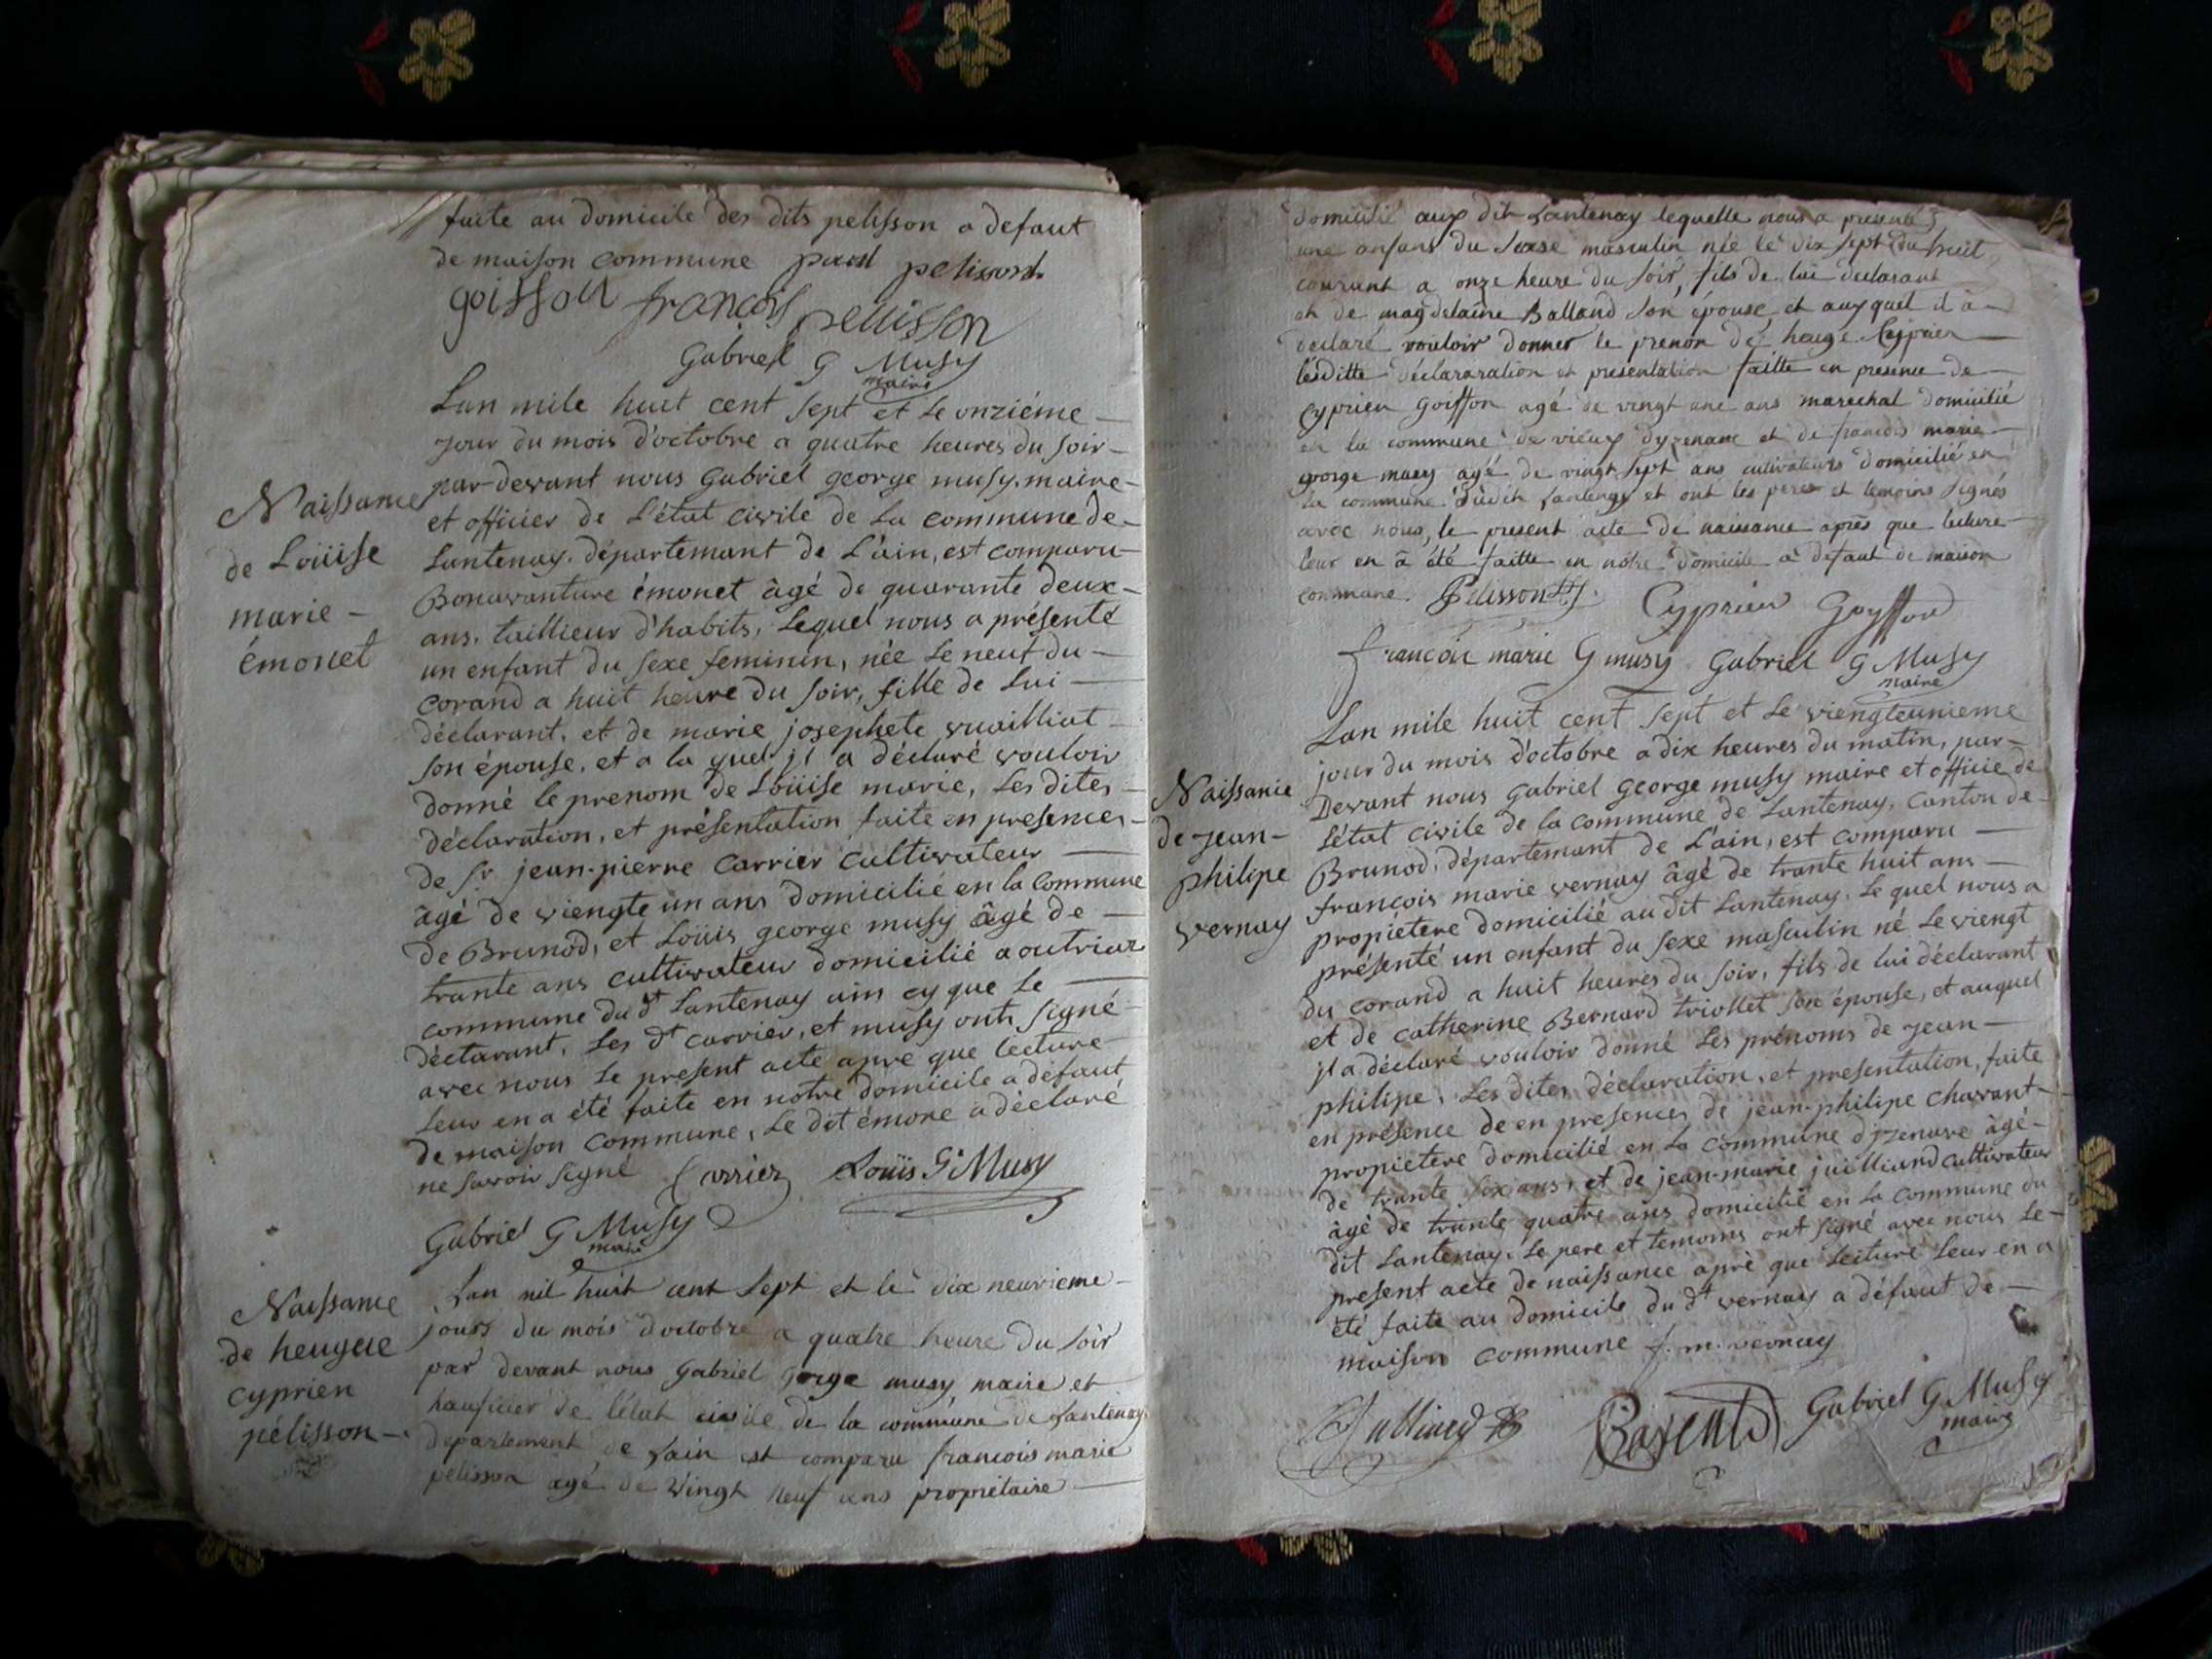 faite au domicile des dits pelisson a defaut
de maison commune paul pelisson
goisson francois pelisson
Gabriel G Musy
maire
Lan mile huit cent sept et le onziéme
jour du mois d'octobre a quatre heures du soir
par devant nous Gabriel george musy. maire
et officier de l'état civile de la commune de
Lantenay. départemant de L'ain, est comparu
Bonavanture émonet âgé de quarante deux
ans. taillieur d'habits, Lequel nous a présenté
un enfant du sexe feminin, née Le neuf du
corand a huit heure du soir, fille de Lui
déclarant, et de marie josephete vuailliat
son épouse, et a la quel jl a déclaré vouloir
donné le prenom de Loüise marie, Les dites
déclaration, et présentation faite en presences
de Sr jean-pierre carrier cultivateur
âgé de viengte un ans domicilié en la commune
de Brunod, et Loüis george musy âgé de
trante ans cultivateur domicilié a outriaz
commune du dt Lantenay ain cy que Le
déclarant, Les dt carrier, et musy onts signé
avec nous Le present acte apre que lecture
Leur en a été faite en notre domicile a défaut
de maison commune, Le dit émone a déclaré
ne savoir signé Carrier Louïs G Musy
Gabriel G Musy
maire
Naissance
de Loüise
marie
émonet
Lan mil huit cent sept et le dix neuvieme
jours du mois doctobre a quatre heure du soir
par devant nous gabriel gorge musy maire et
hauficier de l'état civile de la commune de Lantenay
departement de Lain est comparu francois marie
pelisson agé de vingt neuf ans propriétaire
Naissance
de heugue
cyprien
pélisson
domicilié aux dit Lantenay lequelle nous a presenté
une anfans du sexse masculin née le dix sept du huit
courant a onze heure du soir, fils de lui declarant
et de magdelaine Balland son épouse et auxquel il a
declaré vouloir donner le prenon de heuge Cyprien
lesditte déclararation et presentation faitte en presence de
cyprien goiffon agé de vingt une ans marechal domicilié
en la commune de vieux dyzenave et de francois marie
george musy agé de vingt sept ans cultivateurs domicilié en
la commune dudit Lantenay et ont les peres et temoins signés
avec nous, le present acte de naissance après que lecture
leur en à été faitte en nôtre domicile a defaut de maison
commune. Pelisson Cyprien Goyffon
francois marie G musy Gabriel G Musy
maire
Lan mile huit cent sept et Le viengteunieme
jour du mois d'octobre a dix heures du matin, par
Devant nous Gabriel George musy maire et officie de
L'état civile de la commune de Lantenay, canton de
Brunod, départemant de L'ain, est comparu
francois marie vernay âgé de trante huit ans
propiétere domicilié au dit Lantenay. Le quel nous a
présenté un enfant du sexe masculin né Le viengt
du corand a huit heures du soir, fils de lui déclarant
et de catherine Bernard triollet son épouse, et auquel
jl a déclaré vouloir donné Les prénoms de jean
philipe, Les dites déclaration, et presentation, faite
en présence de en presences de jean-philipe charant
propiétere domicilié en La commune d'jzenave âgé
de trante six ans, et de jean-marie juilliand cultivateur
âgé de trante quatre ans domicilié en La commune du
dit Lantenay. Le pere et temoins ont signé avec nous Le
présent acte de naissance aprè que Lecture Leur en a
été faite au domicile du dt vernay a défaut de
maison commune f. m. vernay
Gabriel G Musy
maire
Naissance
de jean
philipe
vernay